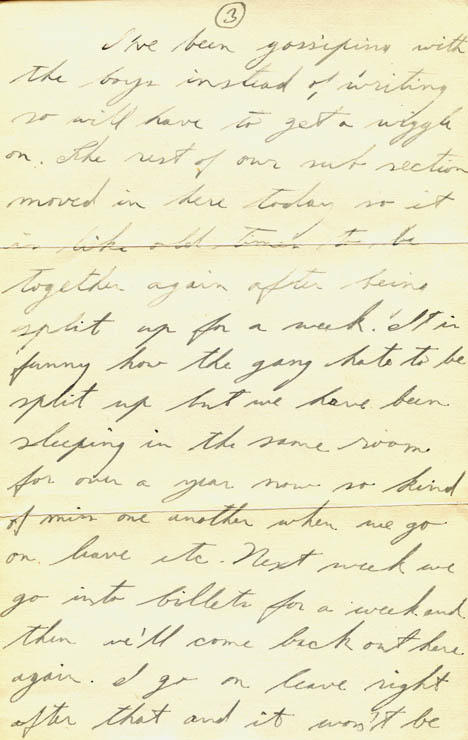 3
I've been gossiping with
the boys instead of writing
so will have to get a wiggle
on. The rest of our sub section
moved in here today so it
is like old times to be
together again after being
split up for a week. It is
funny how the gang hate to be
split up but we have been
sleeping in the same room
for over a year now so kind
of miss one another when we go
on leave etc. Next week we
go into billets for a week and
then we'll come back out here
again. I go on leave right
after that and it won't be